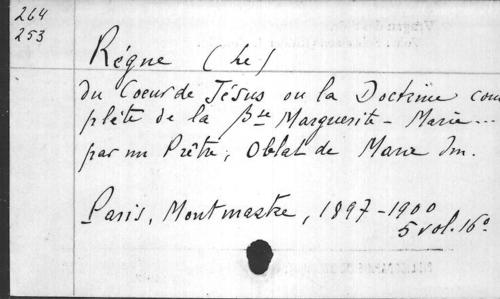 264
253
Régne (Le)
du Coeur de Jésus ou la Doctrine com
pléte de la Bse Marguerite-Marie...
par un Prêtre, Oblat de Marie Im.
Paris, Montmastre, 1897-1900
5 vol. 16°